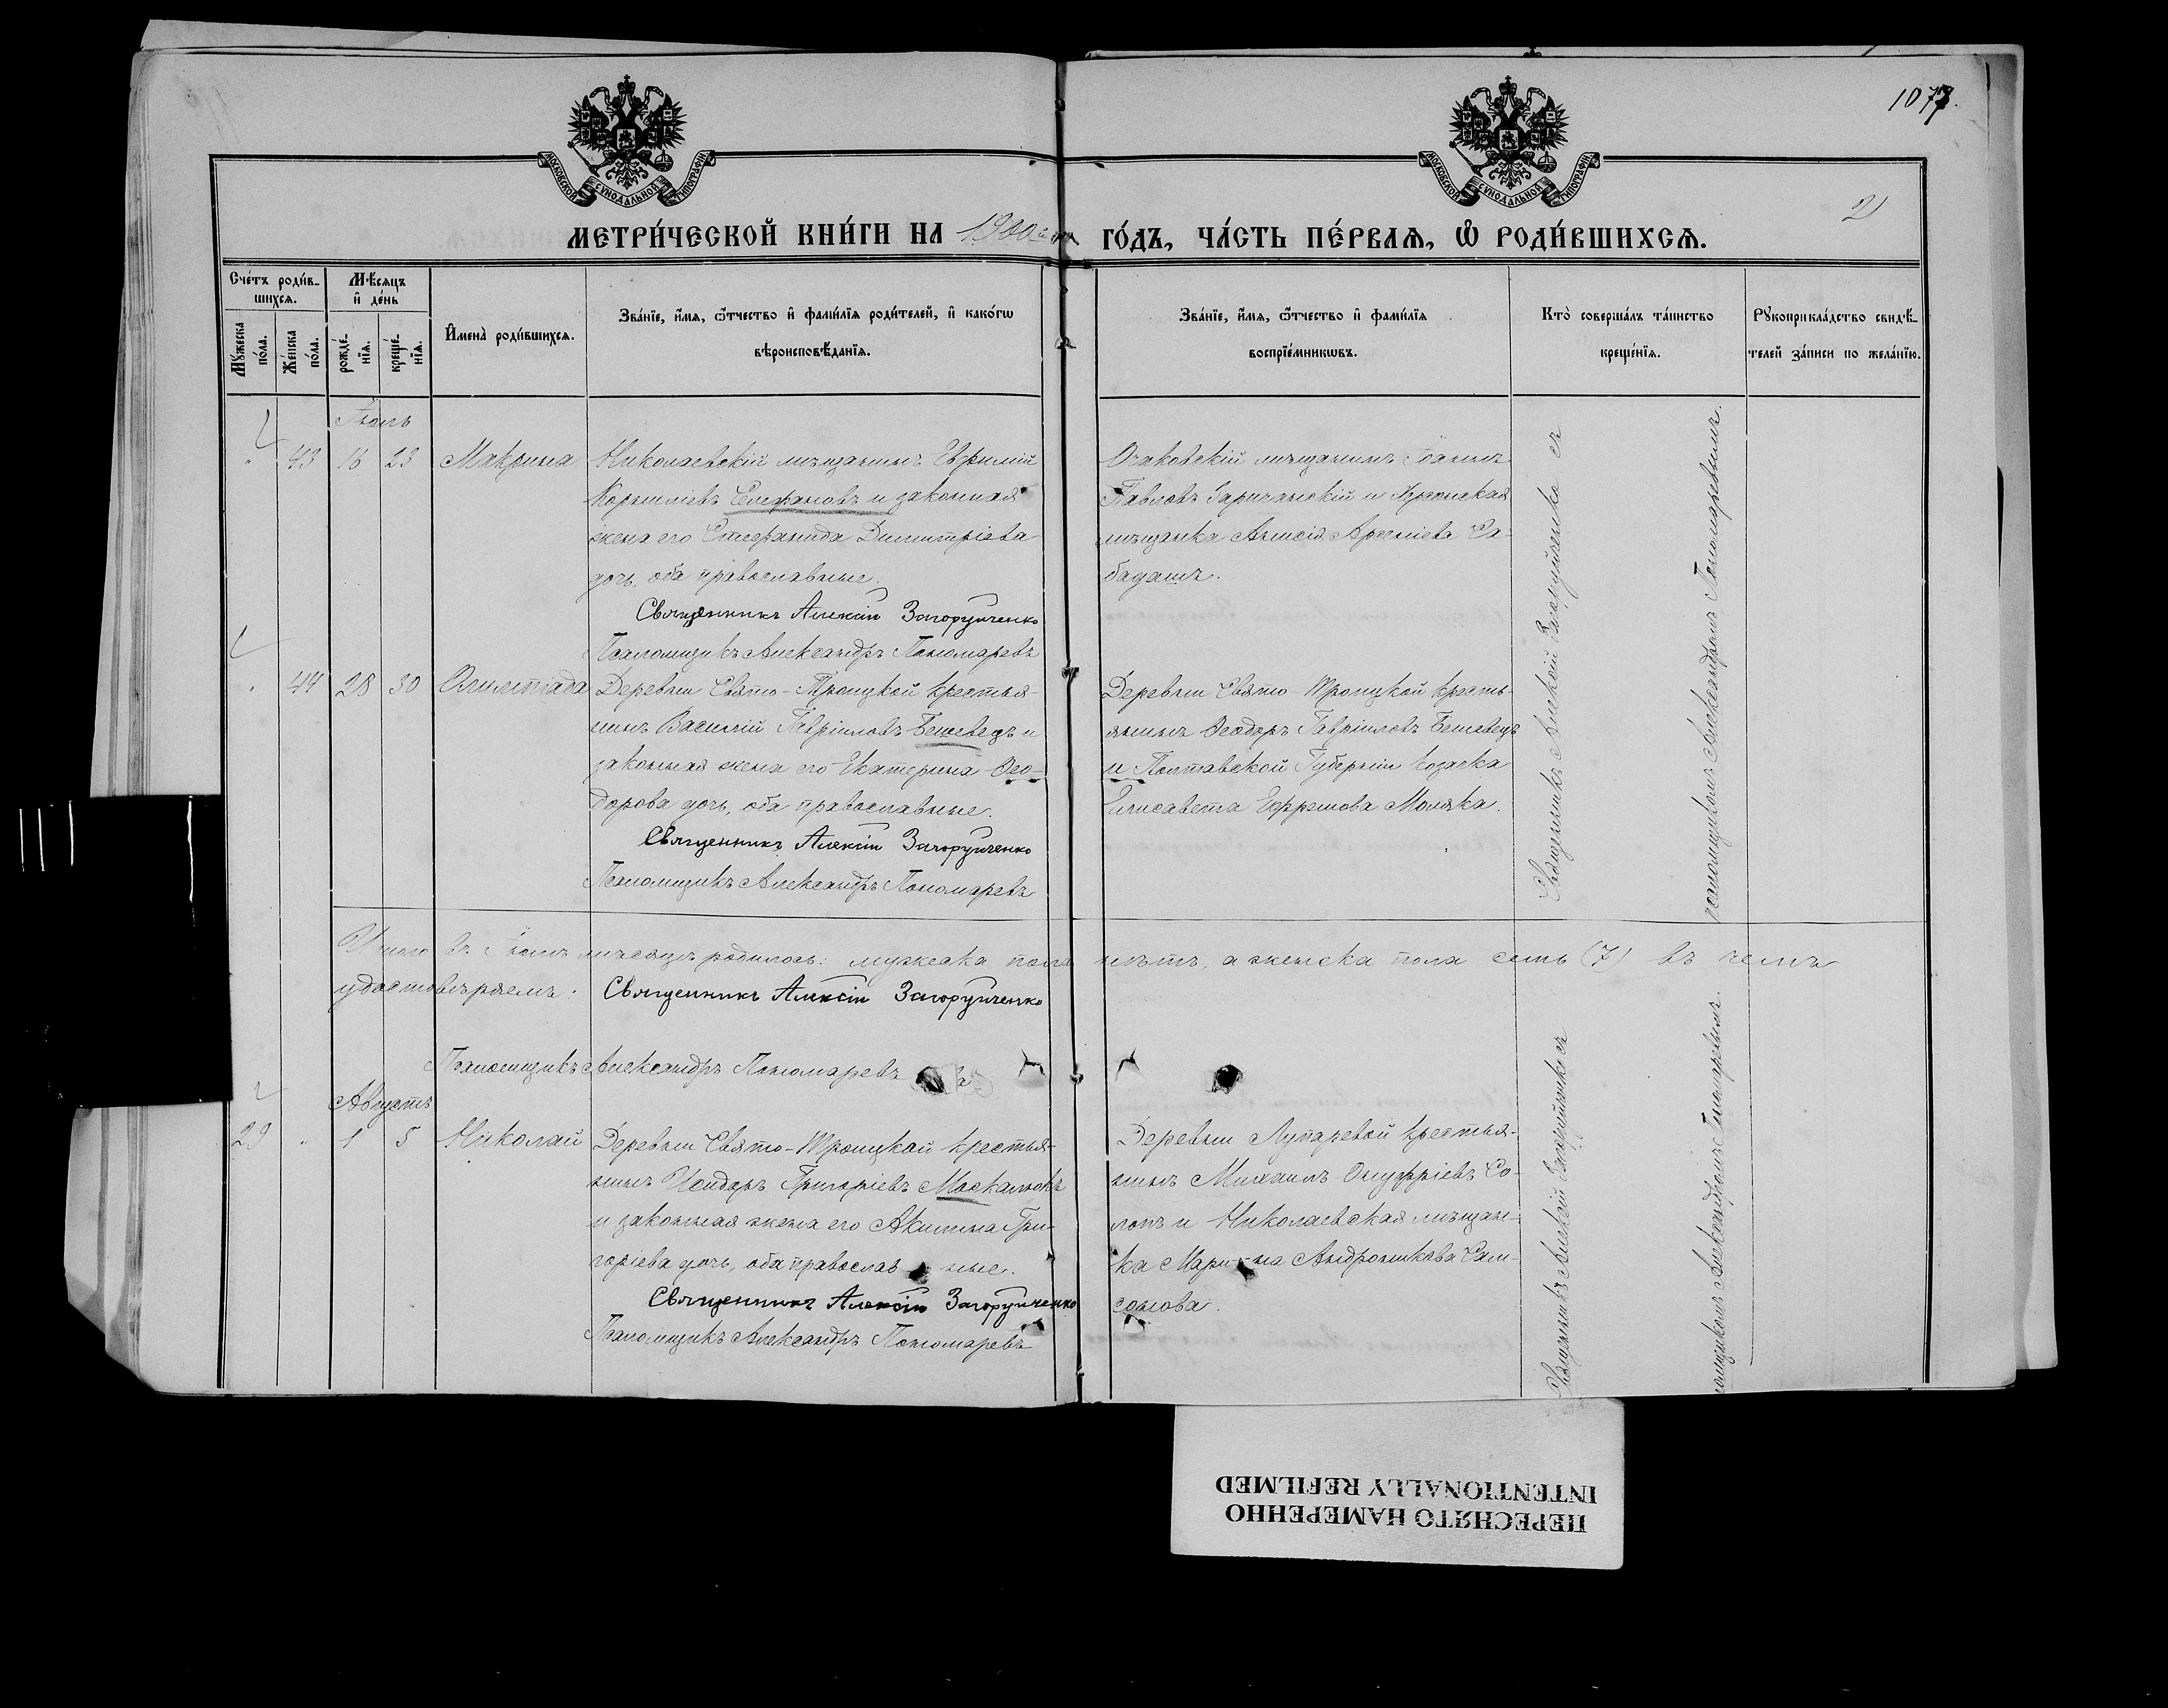 1073.
МОСКОВСКОЙ СѴНОДАЛЬНОЙ ТИПОГРАФІИ
МОСКОВСКОЙ СѴНОДАЛЬНОЙ ТИПОГРАФІИ
21
МЕТРИ́ЧЕСКОЙ КНИ́ГИ НА 1900й ГО́ДЪ, ЧА́СТЬ ПЕ́РВАѦ, Ѡ҆ РОДИ́ВШИХСѦ.
Сче́тъ роди́в-
шихсѧ.
Мѣ́сѧцъ
и҆ де́нь
Мꙋ́жеска
по́ла.
Же́нска
по́ла.
рожде́-
нїѧ.
креще́-
нїѧ.
И҆мена̀ роди́вшихсѧ.
Зва́нїе, и҆́мѧ, ѻ҆́тчество и҆ фамі́лїѧ роди́телей, и҆ како́гѡ
вѣроисповѣ́данїѧ.
Зва́нїе, и҆́мѧ, ѻ҆́тчество и҆ фамі́лїѧ
воспрїе́мникѡвъ.
Кто̀ соверша́лъ та́инство
креще́нїѧ.
Рꙋкоприкла́дство свидѣ́-
телей за́писи по жела́нїю.
Іюль
43 16 23 Макрина
Николаевскій мѣщанинъ Евфимій
Корниліевъ Селефановъ и законная
жена его Стефанида Димитріева
дочь, оба православные.
Священникъ Алексій Загоруйченко
Псаломщикъ Александръ Пономаревъ
Очаковскій мѣщанинъ Іоаннъ
Павловъ Заричанскій и Херсонская
мѣщанка Анисія Арсеніева Са-
бадашъ.
44 28 30 Олимпіада
Деревни Свято-Троицкой крестья-
нинъ Василій Гавріиловъ Бешевецъ и
законная жена его Екатерина Ѳео-
дорова дочь, оба православные.
Священникъ Алексій Загоруйченко
Псаломщикъ Александръ Пономаревъ
Деревни Свято-Троицкой кресть-
янинъ Ѳеодоръ Гавріиловъ Бешевецъ
и Полтавской Губерніи козачка
Елисавета Ефремова Моляка.
Священникъ Алексій Загоруйченко съ
псаломщикомъ Александромъ Пономаревымъ.
Итого въ Іюлѣ мѣсяцѣ родилось: мужеска пола нѣтъ, а женска пола семь (7) въ чемъ
удостовѣряемъ: Священникъ Алексій Загоруйченко
Псаломщикъ Александръ Пономаревъ
Августъ
29 1 5 Николай
Деревни Свято-Троицкой крестья-
нинъ Исидоръ Григоріевъ Москалюкъ
и законная жена его Акилина Гри-
горіева дочь, оба православные.
Священникъ Алексій Загоруйченко
Псаломщикъ Александръ Пономаревъ
Деревни Лупаревой крестья-
нинъ Михаилъ Онуфріевъ Со-
лопъ и Николаевская мѣщан-
ка Марина Андроникова Сам-
сонова.
Священникъ Алексій Загоруйченко съ
псаломщикомъ Александромъ Пономаревымъ.
ПЕРЕСНЯТО НАМЕРЕННО
INTENTIONALLY REFILMED